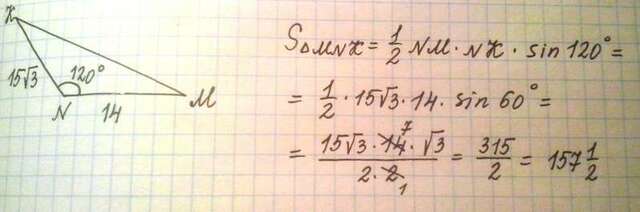 K
15√3
120°
N
14
M
S△MNK = 1/2 NM · NK · sin 120° =
= 1/2 · 15√3 · 14 · sin 60° =
= 15√3 · 14 7 · √3 / 2 · 2 1 = 315/2 = 157 1/2